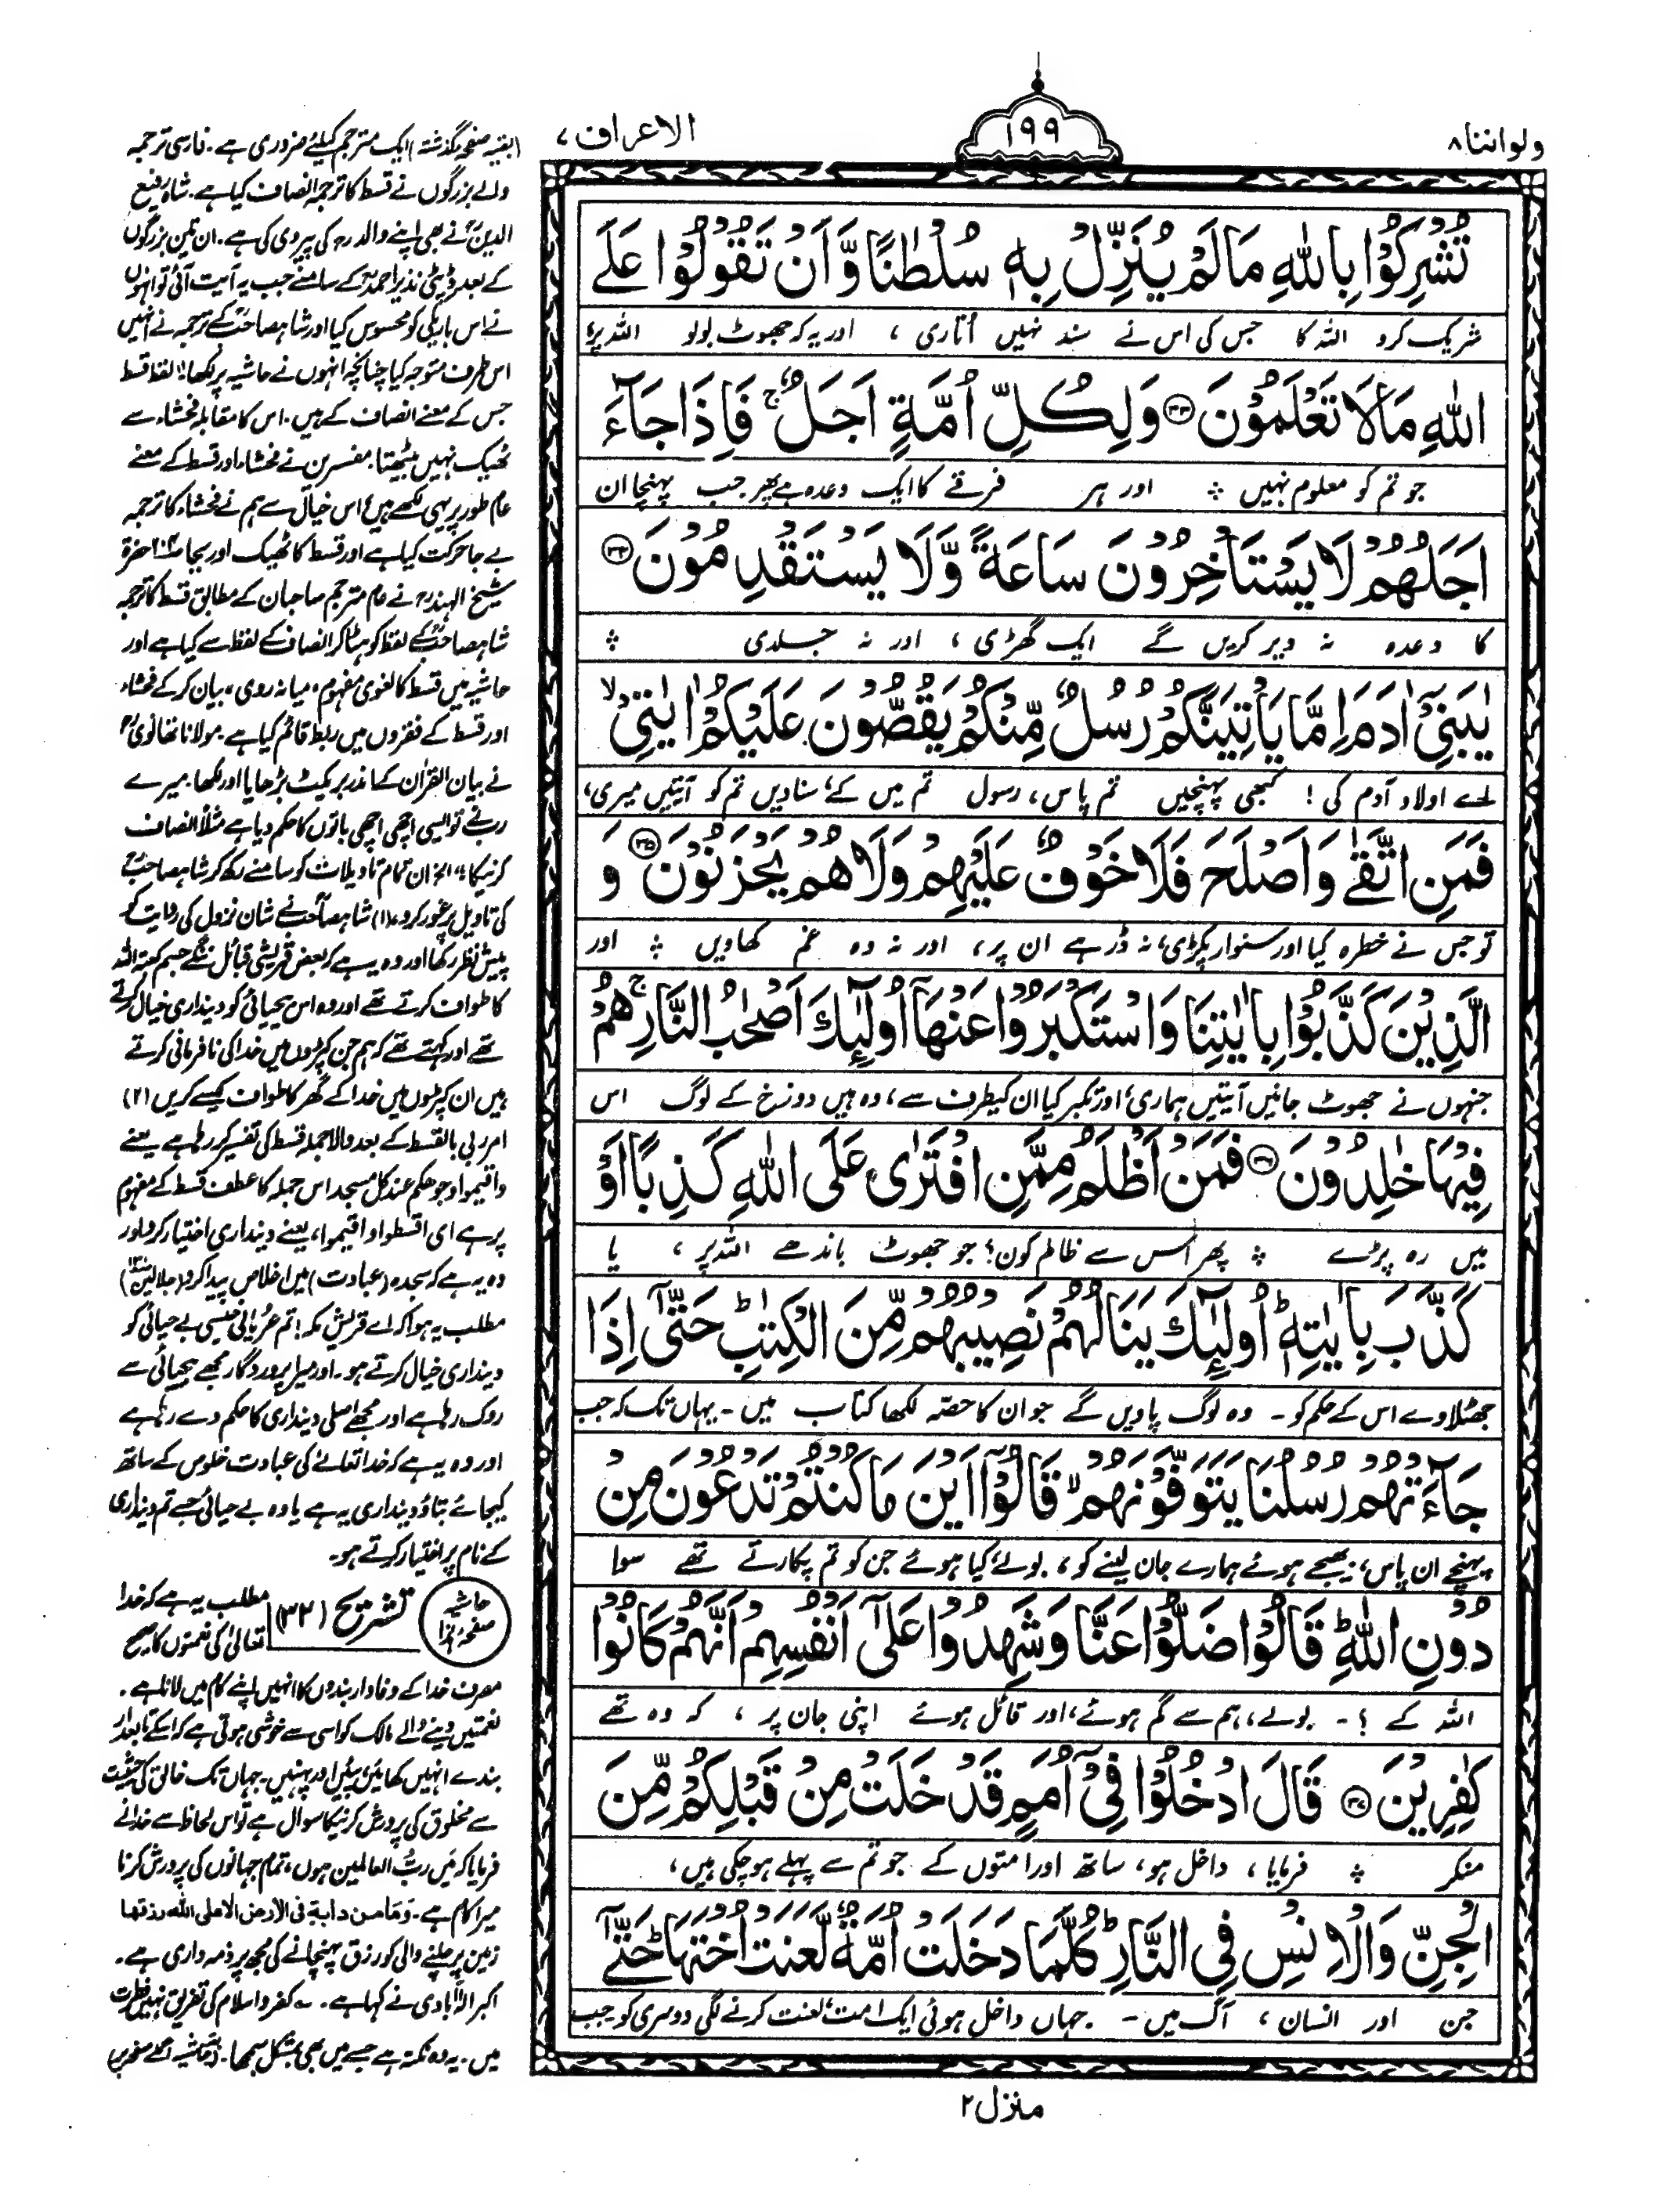 ولواننا ٨
١٩٩
الاعراف ٧
تُشْرِكُوْا بِاللّٰهِ مَا لَمْ يُنَزِّلْ بِهٖ سُلْطٰنًا وَّ اَنْ تَقُوْلُوْا عَلَى
شریک کرو اللہ کا جس کی اس نے سند نہیں اُتاری ، اور یہ کہ جھوٹ بولو اللہ پر،
اللّٰهِ مَا لَا تَعْلَمُوْنَ ﴿٣٣﴾ وَلِكُلِّ اُمَّةٍ اَجَلٌ ۚ فَاِذَا جَآءَ
جو تم کو معلوم نہیں ؞ اور ہر فرقے کا ایک وعدہ ہے پھر جب پہنچا ان
اَجَلُهُمْ لَا يَسْتَاْخِرُوْنَ سَاعَةً وَّلَا يَسْتَقْدِمُوْنَ ﴿٣٤﴾
کا وعدہ نہ دیر کریں گے ایک گھڑی ، اور نہ جلدی ؞
يٰبَنِيْٓ اٰدَمَ اِمَّا يَاْتِيَنَّكُمْ رُسُلٌ مِّنْكُمْ يَقُصُّوْنَ عَلَيْكُمْ اٰيٰتِيْ ۙ
اے اولاد آدم کی ! کبھی پہنچیں تم پاس ، رسول تم میں کے، سنادیں تم کو آیتیں میری،
فَمَنِ اتَّقٰى وَاَصْلَحَ فَلَا خَوْفٌ عَلَيْهِمْ وَلَا هُمْ يَحْزَنُوْنَ ﴿٣٥﴾ وَ
تو جس نے خطرہ کیا اور سنوار پکڑی، نہ ڈر ہے ان پر، اور نہ وہ غم کھاویں ؞ اور
الَّذِيْنَ كَذَّبُوْا بِاٰيٰتِنَا وَاسْتَكْبَرُوْا عَنْهَآ اُولٰٓئِكَ اَصْحٰبُ النَّارِ ۚ هُمْ
جنہوں نے جھوٹ جانیں آیتیں ہماری، اور تکبر کیا ان کیطرف سے، وہ ہیں دوزخ کے لوگ اس
فِيْهَا خٰلِدُوْنَ ﴿٣٦﴾ فَمَنْ اَظْلَمُ مِمَّنِ افْتَرٰى عَلَى اللّٰهِ كَذِبًا اَوْ
میں رہ پڑے ؞ پھر اس سے ظالم کون؟ جو جھوٹ باندھے اللہ پر ، یا
كَذَّبَ بِاٰيٰتِهٖ ۭ اُولٰٓئِكَ يَنَالُهُمْ نَصِيْبُهُمْ مِّنَ الْكِتٰبِ ۭ حَتّٰٓى اِذَا
جھٹلاوے اس کے حکم کو ۔ وہ لوگ پاویں گے جو ان کا حصّہ لکھا کتاب میں ۔ یہاں تک کہ جب
جَآءَتْهُمْ رُسُلُنَا يَتَوَفَّوْنَهُمْ ۙ قَالُوْٓا اَيْنَ مَا كُنْتُمْ تَدْعُوْنَ مِنْ
پہنچے ان پاس، بھیجے ہوئے ہمارے جان لینے کو، بولے، کیا ہوئے جن کو تم پکارتے تھے سوا
دُوْنِ اللّٰهِ ۭ قَالُوْا ضَلُّوْا عَنَّا وَشَهِدُوْا عَلٰٓى اَنْفُسِهِمْ اَنَّهُمْ كَانُوْا
اللہ کے ؟ ۔ بولے، ہم سے گم ہوئے، اور قائل ہوئے اپنی جان پر ، کہ وہ تھے
كٰفِرِيْنَ ﴿٣٧﴾ قَالَ ادْخُلُوْا فِيْٓ اُمَمٍ قَدْ خَلَتْ مِنْ قَبْلِكُمْ مِّنَ
منکر ؞ فرمایا ، داخل ہو، ساتھ اور امتوں کے جو تم سے پہلے ہوچکی ہیں،
الْجِنِّ وَالْاِنْسِ فِي النَّارِ ۭ كُلَّمَا دَخَلَتْ اُمَّةٌ لَّعَنَتْ اُخْتَهَا ۭ حَتّٰٓى
جن اور انسان ، آگ میں ۔ جہاں داخل ہوئی ایک امت، لعنت کرنے لگی دوسری کو جب
(بقیہ صفحہ گذشتہ) ایک مترجم کیلئے ضروری ہے ۔ فارسی ترجمہ
والے بزرگوں نے قسط کا ترجمہ انصاف کیا ہے ۔ شاہ رفیع
الدینؒ نے بھی اپنے والد رح کی پیروی کی ہے ۔ ان تین بزرگوں
کے بعد ڈپٹی نذیر احمدؒ کے سامنے جب یہ آیت آئی تو انہوں
نے اس باریکی کو محسوس کیا اور شاہصاحبؒ کے ترجمہ نے انہیں
اس طرف متوجہ کیا چنانچہ انہوں نے حاشیہ پر لکھا: لفظ قسط
جس کے معنے انصاف کے ہیں ۔ اس کا مقابلہ فحشاء سے
ٹھیک نہیں بیٹھتا ۔ مفسرین نے فحشاء اور قسط کے معنے
عام طور پر یہی لکھے ہیں، اس خیال سے ہم نے فحشاء کا ترجمہ
بے جا حرکت کیا ہے اور قسط کا ٹھیک اور بجا ص۲۰۳ حضرۃ
شیخ الہندرح نے عام مترجم صاحبان کے مطابق قسط کا ترجمہ
شاہصاحبؒ کے لفظ کو ہٹا کر انصاف کے لفظ سے کیا ہے اور
حاشیہ میں قسط کا لغوی مفہوم، میانہ روی، بیان کر کے فحشاء
اور قسط کے فقروں میں ربط قائم کیا ہے ۔ مولانا تھانویؒ
نے بیان القرآن کے اندر بریکٹ بڑھایا اور لکھا ۔ میرے
رب نے تو ایسی اچھی اچھی باتوں کا حکم دیا ہے مثلاً انصاف
کرنیکا، الخ ان تمام تاویلات کو سامنے رکھ کر شاہصاحبؒ
کی تاویل پر غور کرو (۱) شاہصاحبؒ نے شان نزول کی روایت کو
پیش نظر رکھا اور وہ یہ ہے کہ بعض قریشی قبائل ننگے جسم کعبۃ اللہ
کا طواف کرتے تھے اور وہ اس بےحیائی کو دینداری خیال کرتے
تھے اور کہتے تھے کہ ہم جن کپڑوں میں خدا کی نافرمانی کرتے
ہیں ان کپڑوں میں خدا کے گھر کا طواف کیسے کریں (۲)
امر ربی بالقسط کے بعد والا جملہ قسط کی تفسیر کر رہا ہے یعنے
واقیموا وجوھکم عند کل مسجد اس جملہ کا عطف قسط کے مفہوم
پر ہے ای اقسطوا واقیموا، یعنے دینداری اختیار کرو اور
وہ یہ ہے کہ سجدہ (عبادت) میں اخلاص پیدا کرو (جلالین)
مطلب یہ ہوا کہ اے قریش مکہ! تم عریانی جیسی بے حیائی کو
دینداری خیال کرتے ہو ۔ اور میرا پروردگار مجھے بےحیائی سے
روک رہا ہے اور مجھے اصلی دینداری کا حکم دے رہا ہے
اور وہ یہ ہے کہ خدا تعالےٰ کی عبادت خلوص کے ساتھ
کیجائے بتاؤ دینداری یہ ہے یا وہ بے حیائی جسے تم دینداری
کے نام پر اختیار کرتے ہو۔
حاشیہ صفحہ ہذا
تشریح (۳۲) مطلب یہ ہے کہ خدا
تعالیٰ کی نعمتوں کا صحیح
مصرف خدا کے وفادار بندوں کا انہیں اپنے کام میں لانا ہے ۔
نعمتیں دینے والے مالک کو اسی سے خوشی ہوتی ہے کہ اسکے تابعدار
بندے انہیں کھائیں، پئیں اور پہنیں ۔ جہاں تک خالق کی حیثیت
سے مخلوق کی پرورش کرنیکا سوال ہے تو اس لحاظ سے خدا نے
فرمایا کہ میں ربُّ العالمین ہوں، تمام جہانوں کی پرورش کرنا
میرا کام ہے ۔ وَمَا من دابۃ فی الارض الا علی اللہ رزقھا
زمین پر چلنے والی کو رزق پہنچانے کی مجھ پر ذمہ داری ہے ۔
اکبر الٰہ آبادی نے کہا ہے ۔ ؎ کفر و اسلام کی تفریق نہیں فطرت
میں ۔ یہ وہ نکتہ ہے جسے میں بھی بمشکل سمجھا ۔ (بقیہ حاشیہ اگلے صفحہ پر)
منزل ٢